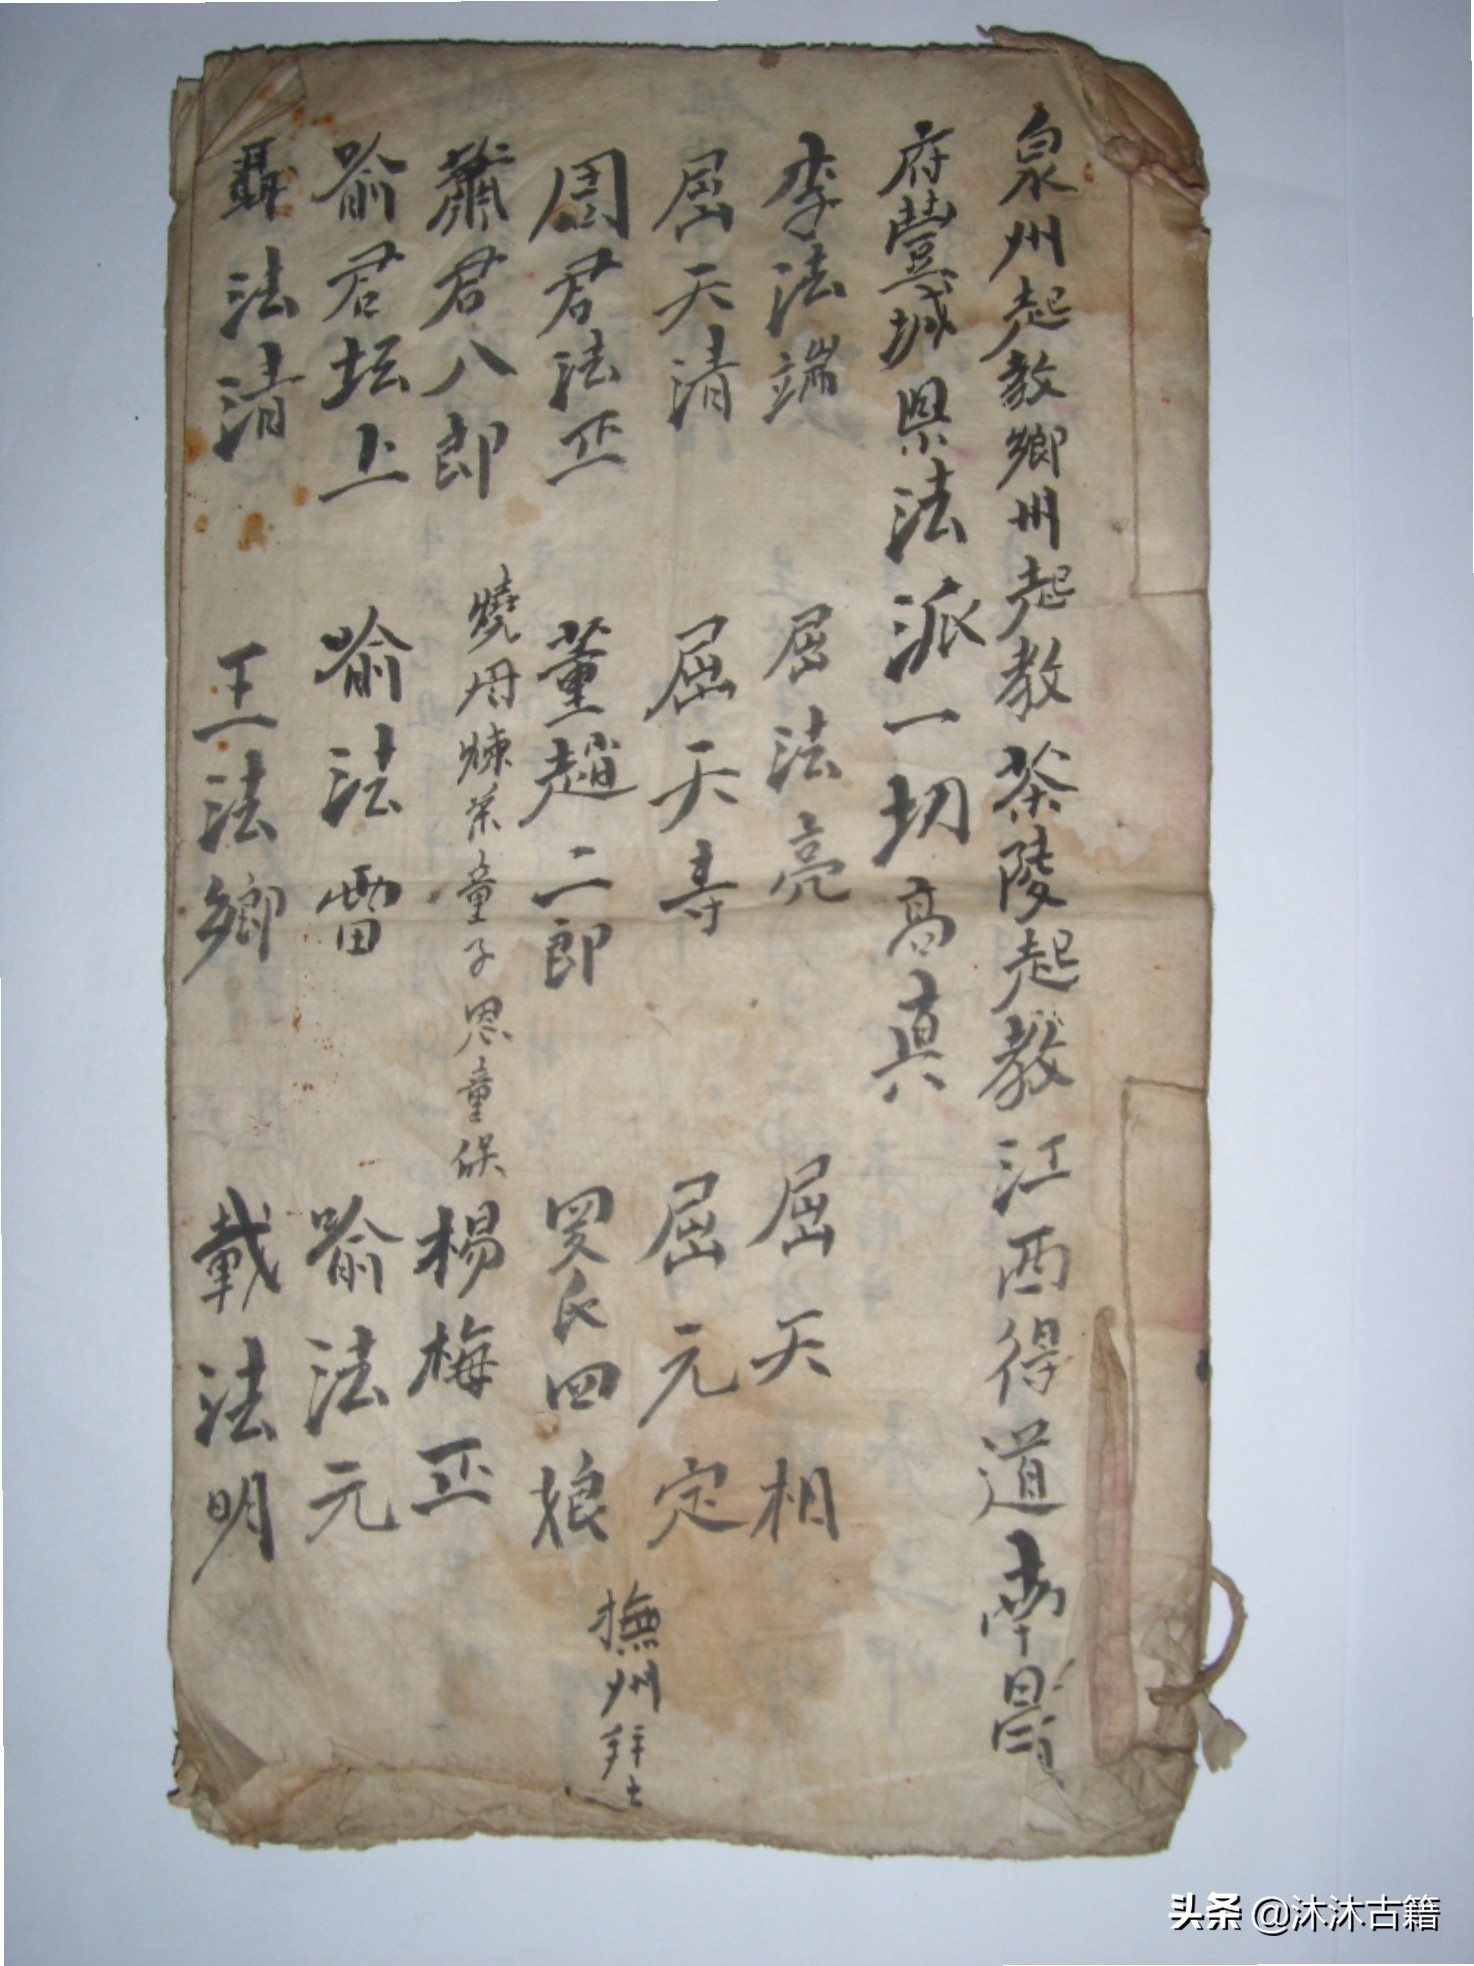 泉州起教鄉州起教茶陵起教江西得道南昌
府豐城県法派一切高真
李法端 屈法亮 屈天相
屈天清 屈天寿 屈元定
撫州拜
周君法正 董趙二郎 罗氏四娘
蕭君八郎 燒丹煉药童子恩童保 楊梅正
喻君坛上 喻法雷 喻法元
聶法清 王法鄉 載法明
头条 @沐沐古籍